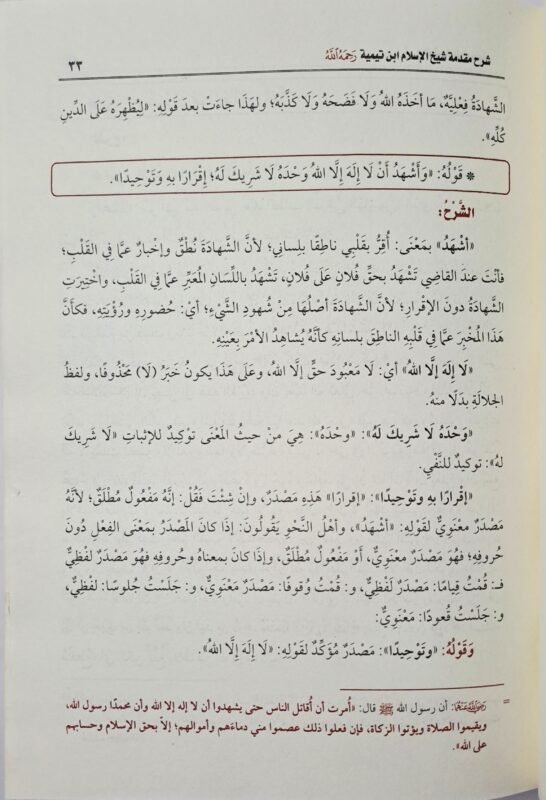 شرح مقدمة شيخ الإسلام ابن تيمية رَحِمَهُ ٱللَّهُ
٣٣
الشَّهادَةُ فِعْلِيَّةٌ، مَا أخَذَهُ اللهُ وَلَا فَضَحَهُ وَلَا كَذَّبَهُ؛ ولهَذَا جاءَتْ بعدَ قَوْلِهِ: «لِيُظْهِرَهُ عَلَى الدِّينِ
كُلِّهِ».
* قَوْلُهُ: «وَأَشْهَدُ أَنْ لَا إِلَهَ إِلَّا اللهُ وَحْدَهُ لَا شَرِيكَ لَهُ؛ إِقْرَارًا بِهِ وَتَوْحِيدًا».
الشَّرْحُ:
«أَشْهَدُ» بمَعْنَى: أُقِرُّ بقَلْبِي ناطِقًا بلِسانِي؛ لأنَّ الشَّهادَةَ نُطْقٌ وإِخْبارٌ عمَّا فِي القَلْبِ؛
فأنْتَ عندَ القاضِي تَشْهَدُ بحقِّ فُلانٍ عَلَى فُلانٍ، تَشْهَدُ باللِّسانِ المُعَبِّرِ عمَّا فِي القَلْبِ، واخْتِيرَتِ
الشَّهادَةُ دونَ الإقْرارِ؛ لأنَّ الشَّهادَةَ أصْلُها مِنْ شُهودِ الشَّيْءِ؛ أيْ: حُضورِهِ ورُؤْيَتِهِ، فكأَنَّ
هَذَا المُخْبِرَ عمَّا فِي قَلْبِهِ الناطِقَ بلسانِهِ كأنَّهُ يُشاهِدُ الأمْرَ بعَيْنِهِ.
«لَا إِلَهَ إِلَّا اللهُ» أيْ: لَا مَعْبُودَ حقٌّ إلَّا اللهُ، وعَلَى هَذَا يكونُ خَبَرُ (لَا) مَحْذُوفًا، ولفظُ
الجلالَةِ بدَلًا منهُ.
«وَحْدَهُ لَا شَرِيكَ لَهُ»: «وحدَهُ»: هِيَ منْ حيثُ المَعْنَى توْكِيدٌ للإثباتِ «لَا شَرِيكَ
لهُ»: توكيدٌ للنَّفْيِ.
«إِقْرارًا بِهِ وتَوْحِيدًا»: «إقرارًا» هَذِهِ مَصْدَرٌ، وإنْ شِئْتَ فَقُلْ: إنَّهُ مَفْعُولٌ مُطْلَقٌ؛ لأنَّهُ
مَصْدَرٌ معنَوِيٌّ لقَوْلِهِ: «أشْهَدُ»، وأهْلُ النَّحْوِ يَقُولُونَ: إذَا كانَ المَصْدَرُ بمَعْنَى الفِعْلِ دُونَ
حُروفِهِ؛ فهُوَ مَصْدَرٌ معنَوِيٌّ، أَوْ مَفْعُولٌ مُطْلَقٌ، وإذَا كانَ بمعناهُ وحُروفِهِ فهُوَ مَصْدَرٌ لفظِيٌّ
فـ: قُمْتُ قِيامًا: مَصْدَرٌ لَفْظِيٌّ، و: قُمْتُ وُقوفًا: مَصْدَرٌ مَعْنَوِيٌّ، و: جَلَسْتُ جُلوسًا: لفظِيٌّ،
و: جَلَسْتُ قُعودًا: مَعْنَوِيٌّ:
وَقَوْلُهُ: «وتَوْحِيدًا»: مَصْدَرٌ مُؤَكِّدٌ لقَوْلِهِ: «لَا إِلَهَ إِلَّا اللهُ».
= رَضِيَ ٱللَّهُ عَنْهُمَا: أن رسول الله ﷺ قال: «أُمرت أن أُقاتل الناس حتى يشهدوا أن لا إله إلا الله وأن محمدًا رسول الله،
ويقيموا الصلاة ويؤتوا الزكاة، فإن فعلوا ذلك عصموا مني دماءهم وأموالهم؛ إلاَّ بحق الإسلام وحسابهم
على الله».